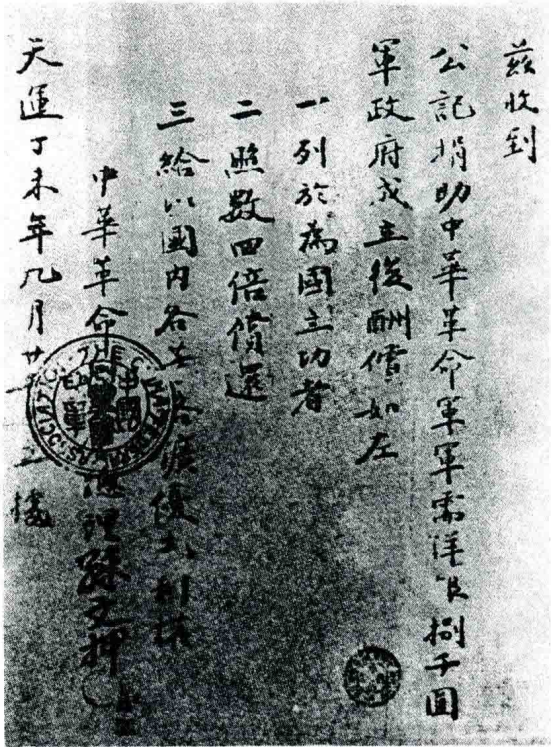 茲收到
公記捐助中華革命軍軍需洋銀捌千圓
軍政府成立後酬償如左
一列於為國立功者
二照數四倍償還
三給以國內各 路礦優先利權
中華革命 總理孫文押
天運丁未年九月廿 立據